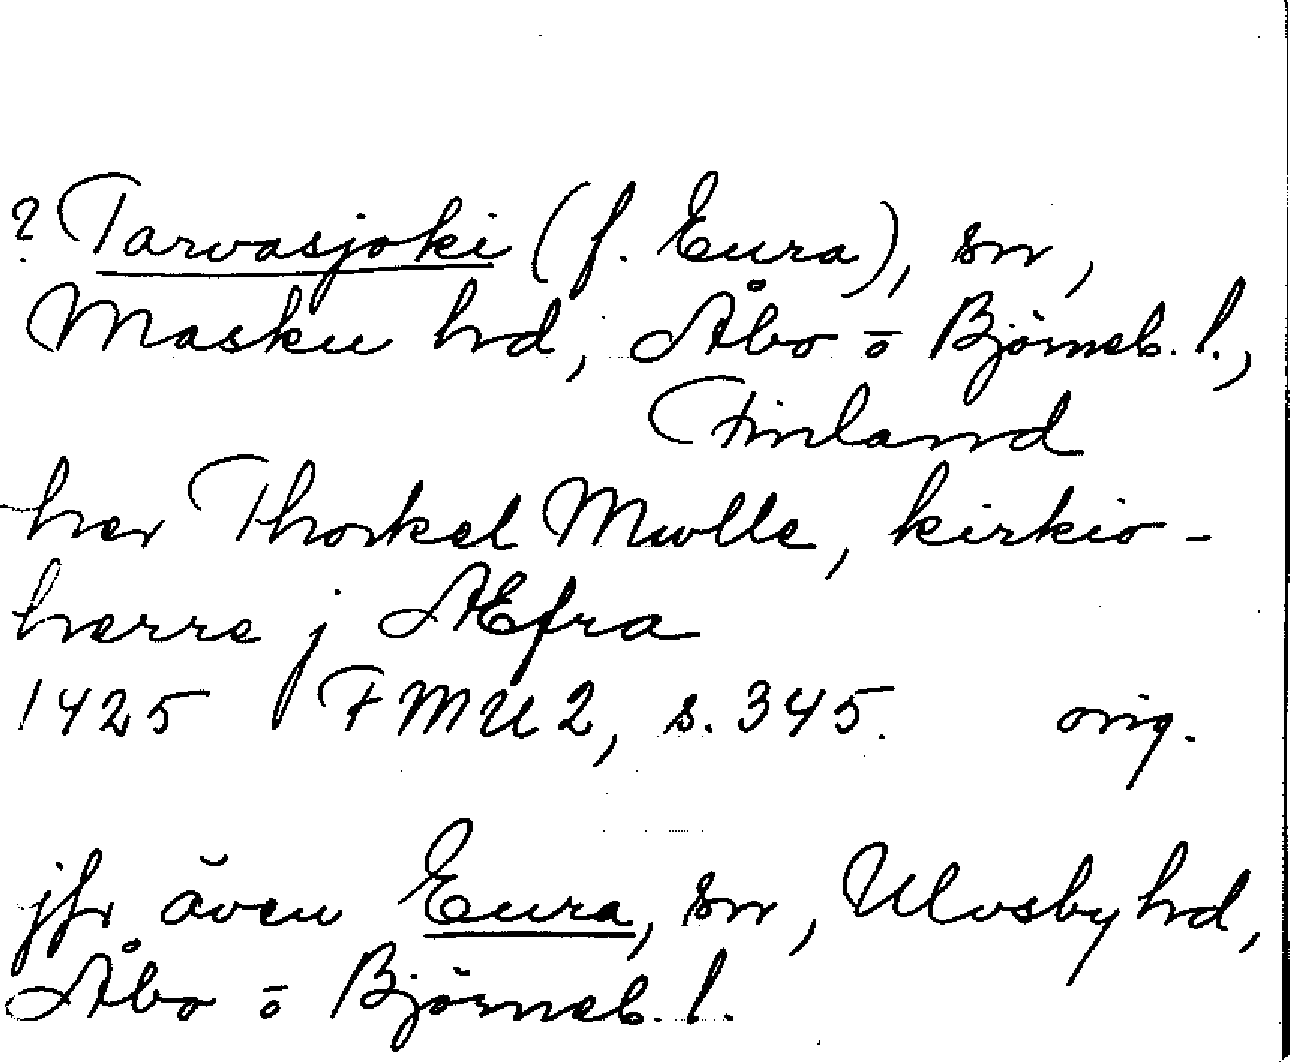 ? Tarvasjoki (f. Eura), sn,
Masku hd, Åbo o Björneb. l.,
Finland
her Thorkel Mwlle, kirkio-
herre j Æfra
1425 FMU 2, s. 345. orig.
jfr även Eura, sn, Ulvsby hd,
Åbo o Björneb. l.